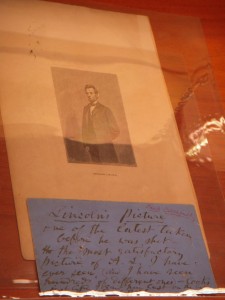 Lincoln's Picture
one of the latest taken
before he was shot
the most satisfactory
Picture of A. L. I have
ever seen, and I have seen
hundreds of different ones